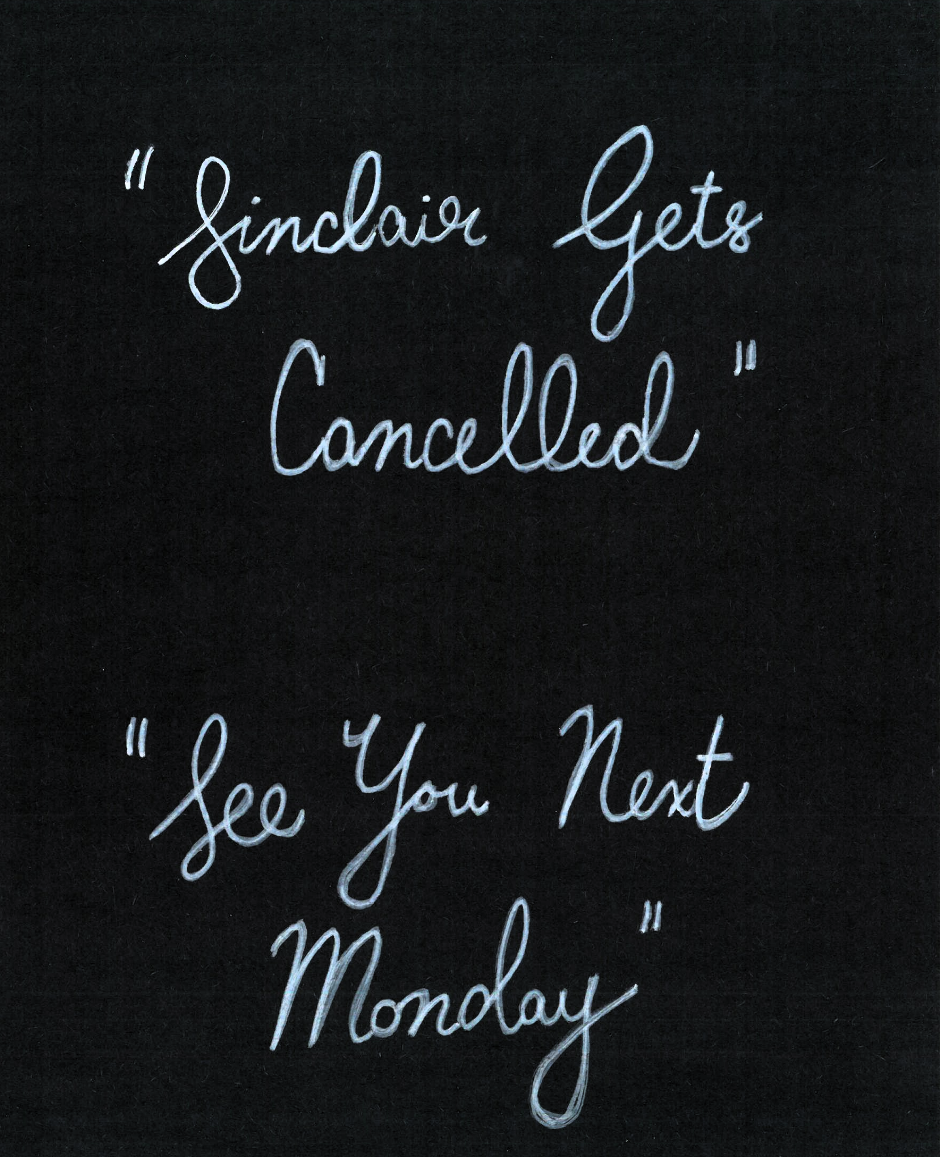 "Sinclair Gets
Cancelled"
"See You Next
Monday"